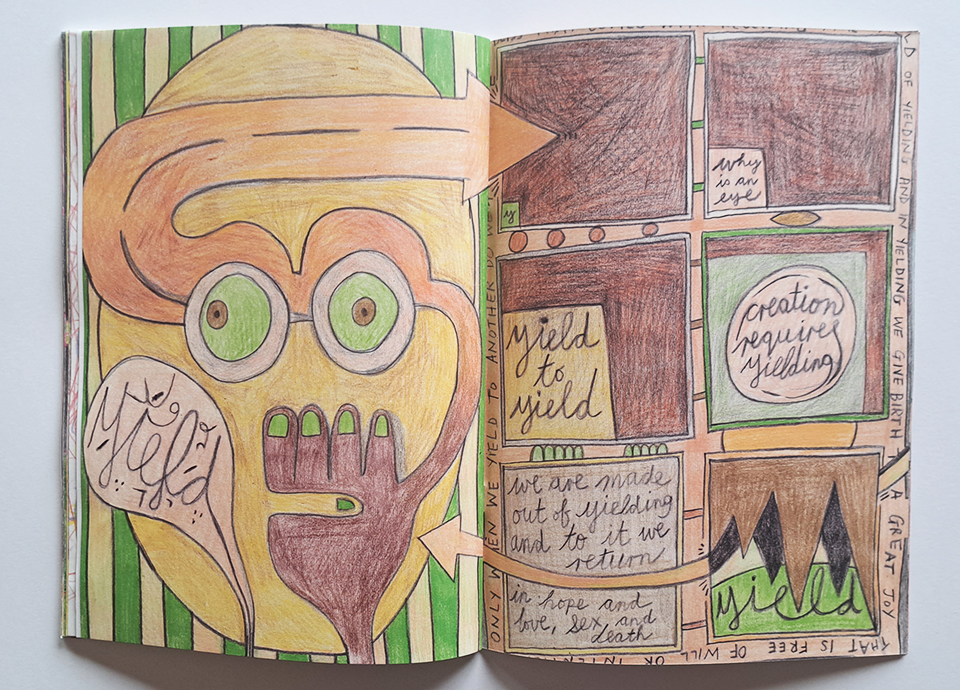 yield
y
why
is an
eye
yield
to
yield
creation
requires
yielding
we are made
out of yielding
and to it we
return
in hope and
love, sex and
death
yield
ONLY WHEN WE YIELD TO ANOTHER DO WE
LD OF YIELDING AND IN YIELDING WE GIVE BIRTH
A GREAT JOY
THAT IS FREE OF WILL OR